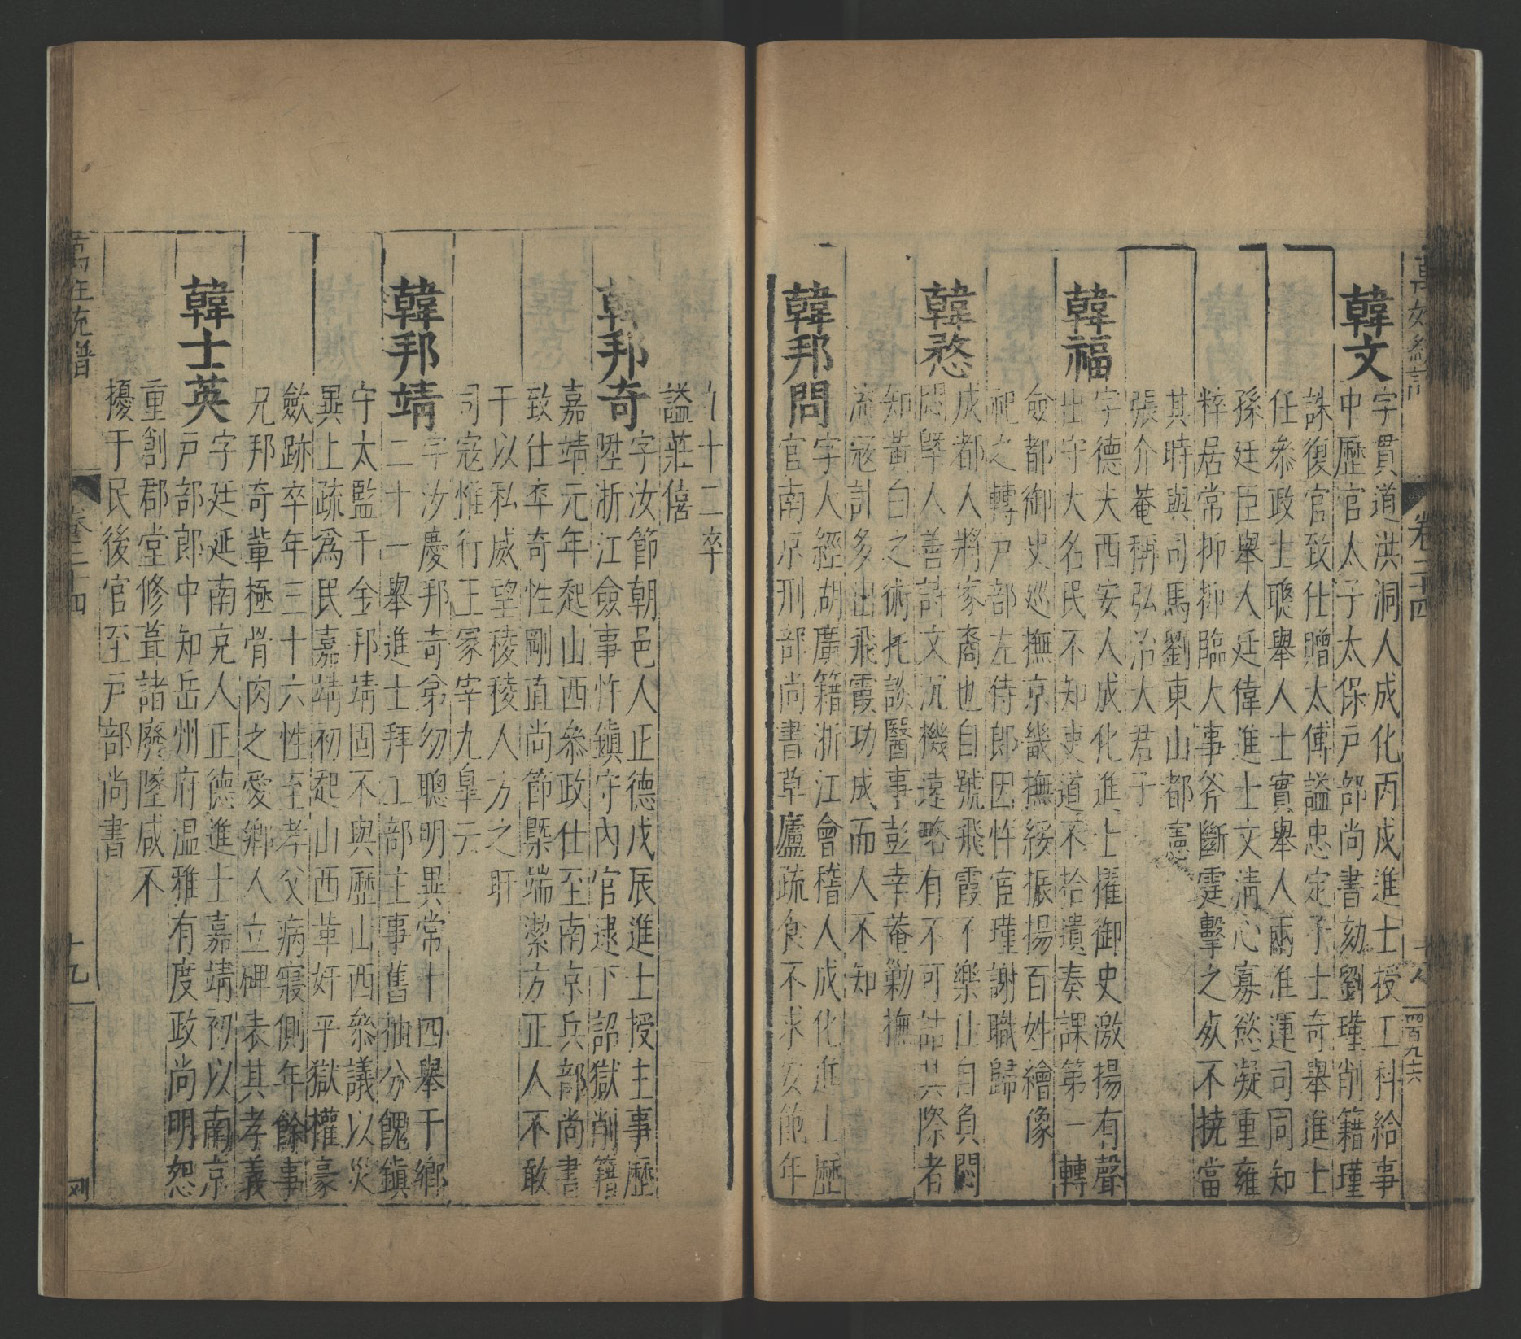 韓文字貫道洪洞人成化丙戌進士授工科給事
中歷官太子太保戸部尚書劾劉瑾削籍瑾
誅復官致仕贈太傅謚忠定子士奇舉進士
任參政士聰舉人士實舉人兩淮運司同知
孫廷臣舉人廷偉進士文清心寡慾凝重雍
粹居常抑抑臨大事斧斷霆擊之必不撓當
其時與司馬劉東山都憲
張介菴稱弘治大君子
韓福字德夫西安人成化進士擢御史激揚有聲
出守大名民不知吏道不拾遺奏課第一轉
僉都御史巡撫京畿撫綏振揚百姓繪像
祀之轉戸部左侍郎因忤宦瑾謝職歸
韓愗成都人將家裔也自號飛霞不樂止自負悶
悶舉人善詩文沉機遠略有不可詰其際者
知黃白之術托談醫事彭幸菴勦撫
流寇計多出飛霞功成而人不知
韓邦問字人經胡廣籍浙江會稽人成化進士歷
官南京刑部尚書草廬疏食不求安飽年
八十二卒
謚莊僖
韓邦奇字汝節朝邑人正德戊辰進士授主事歷
陞浙江僉事忤鎮守內官逮下詔獄削籍
嘉靖元年起山西參政仕至南京兵部尚書
致仕卒奇性剛直尚節槩端潔方正人不敢
干以私威望稜稜人方之盱
司寇惟行王冢宰九皐元
韓邦靖字汝慶邦奇弟幼聰明異常十四舉于鄉
二十一舉進士拜工部主事舊抽分餽鎮
守太監千金邦靖固不與歷山西參議以災
異上疏爲民嘉靖初起山西革奸平獄權豪
斂跡卒年三十六性至孝父病寢側年餘事
兄邦奇葷極骨肉之愛鄉人立碑表其孝義
韓士英字廷延南充人正德進士嘉靖初以南京
戸部郎中知岳州府温雅有度政尚明恕
重創郡堂修葺諸廢墜咸不
擾于民後官至戸部尚書
卷三十四
十九